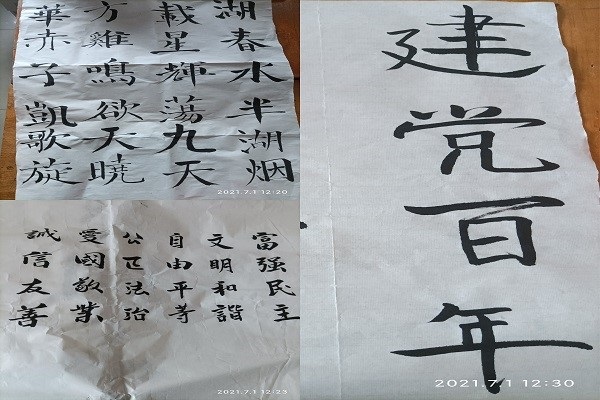 湖春水半湖烟
載星輝蕩九天
方雞鳴欲天曉
華赤子凱歌旋
2021.7.1 12:20
富强民主
文明和諧
自由平等
公正法治
愛國敬業
誠信友善
2021.7.1 12:23
建党百年
2021.7.1 12:30